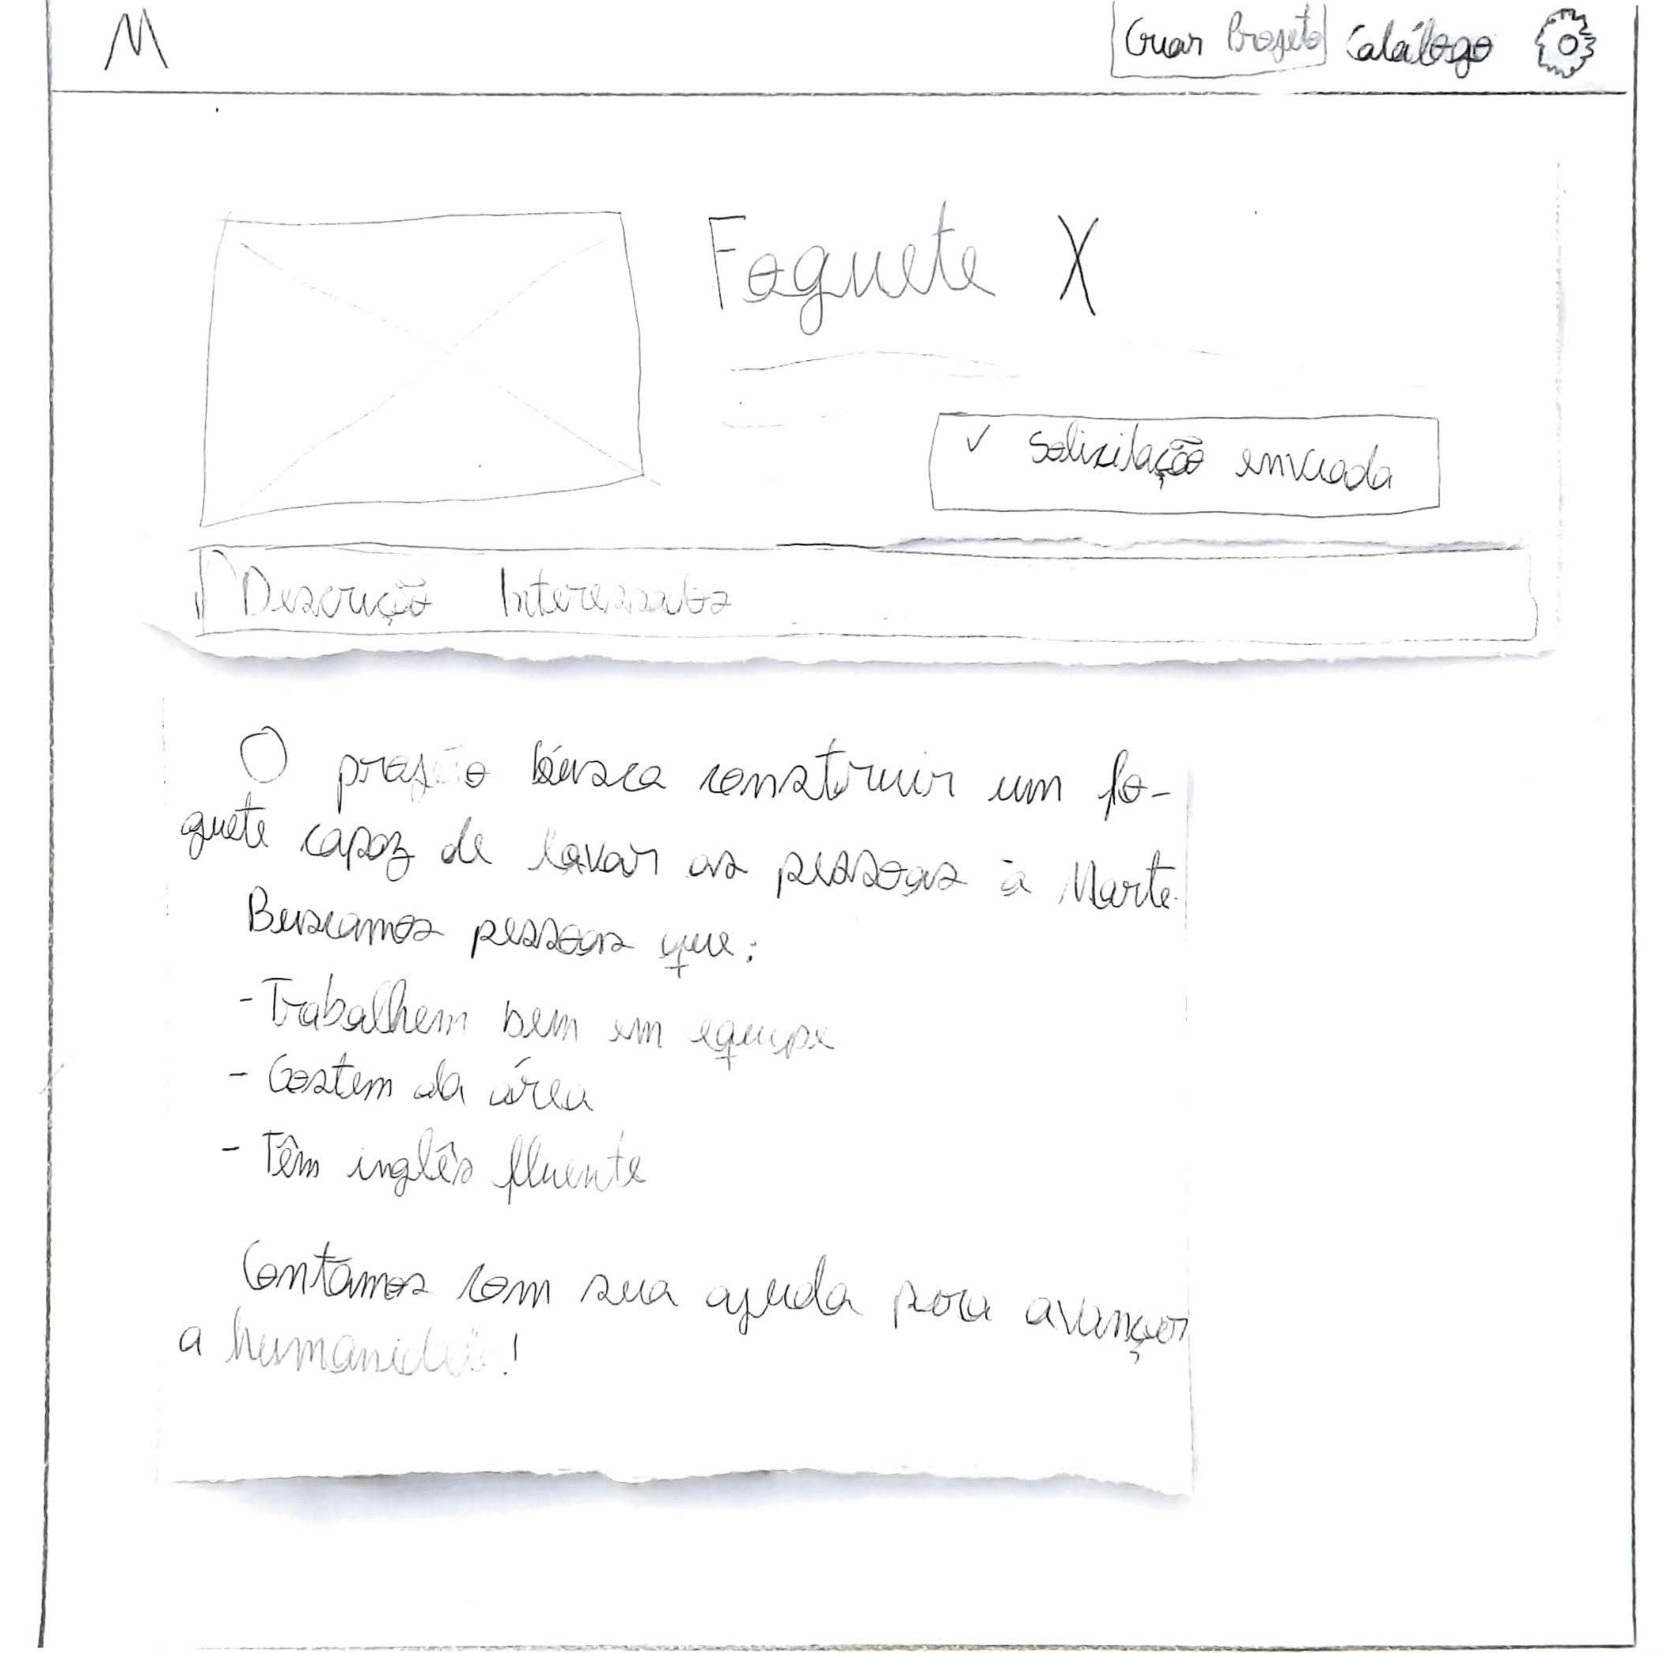 M
Criar Projeto Catálogo
Foguete X
✓ Solicitação enviada
Descrição Interessados
O projeto busca construir um fo-
guete capaz de lavar as pessoas à Marte.
Buscamos pessoas que:
- Trabalhem bem em equipe
- Gostem da área
- Têm inglês fluente
Contamos com sua ajuda para avançar
a humanidade!